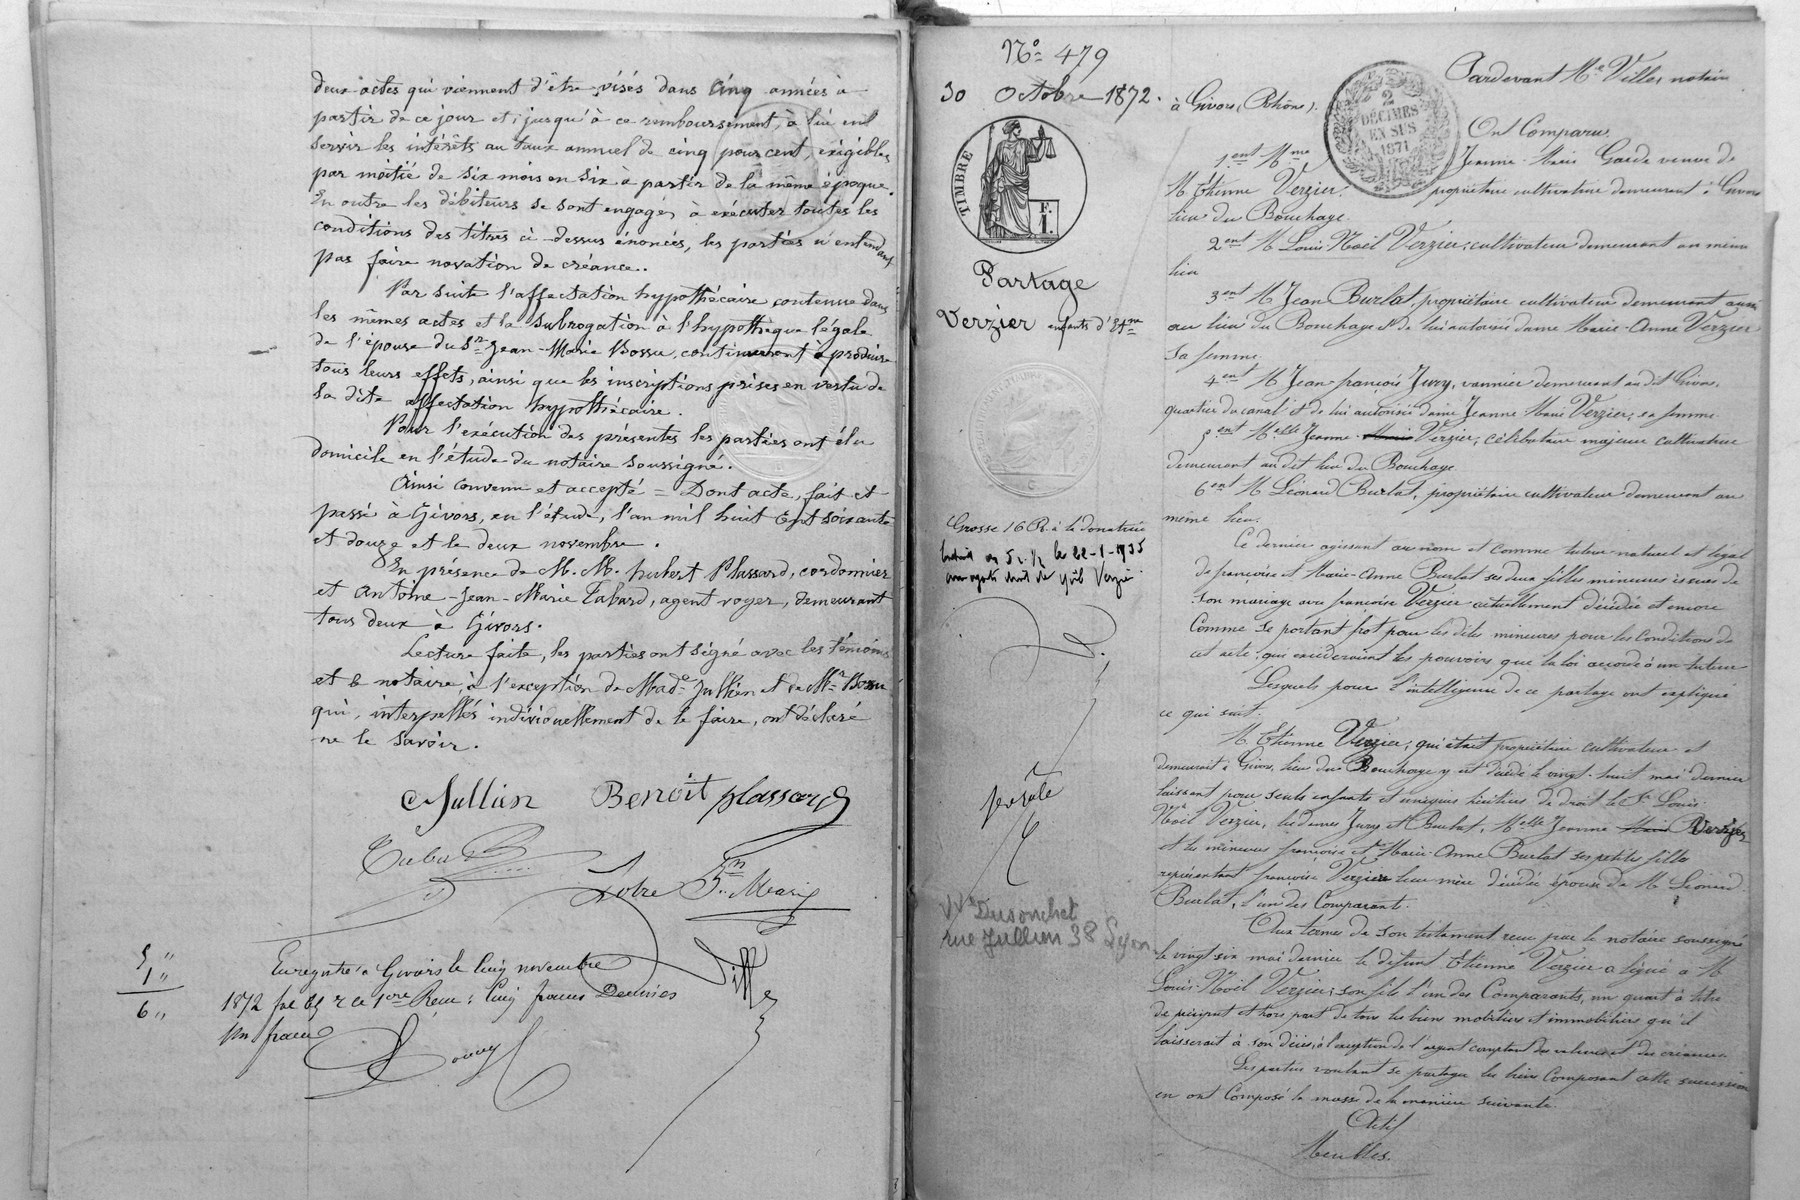 deux actes qui viennent d'être visés dans cinq années à
partir de ce jour et, jusqu'à ce remboursement, à lui en
servir les intérêts au taux annuel de cinq pour cent, exigibles
par moitié de six mois en six à partir de la même époque.
En outre les débiteurs se sont engagés à exécuter toutes les
conditions des titres ci-dessus énoncés, les parties n'entendant
pas faire novation de créance.
Par suite l'affectation hypothécaire contenue dans
les mêmes actes et la subrogation à l'hypothèque légale
de l'épouse du Sr Jean-Marie Bossu, continueront à produire
tous leurs effets, ainsi que les inscriptions prises en vertu de
la dite affectation hypothécaire.
Pour l'exécution des présentes les parties ont élu
domicile en l'étude du notaire soussigné.
Ainsi convenu et accepté = Dont acte, fait et
passé à Givors, en l'étude, l'an mil huit cent soixante
et douze et le deux novembre.
En présence de M. M. hubert Plassard, cordonnier
et Antoine-Jean-Marie Tabard, agent voyer, demeurant
tous deux à Givors.
Lecture faite, les parties ont signé avec les témoins
et le notaire, à l'exception de Made Jullien et de Mr Bossu
qui, interpellés individuellement de le faire, ont déclaré
ne le savoir.
Jullien Benoit plassard
5 "
1 "
6 "
Enregistré à Givors le cinq novembre
1872 Reçu: Cinq francs Décimes
un franc
No 479
30 Octobre 1872.
TIMBRE
F.
1.
Partage
Verzier enfants d'Etne
Grosse 16 R. à la donatrice
le 22-1-1935
Verzier
Vve Dusonchet
rue Jullien 38 Lyon
2
DÉCIMES
EN SUS
1871
Pardevant Me Ville, notaire
à Givors (Rhône).
Ont Comparu
1ent Mme Jeanne-Marie Garde veuve de
M. Etienne Verzier, propriétaire cultivatrice demeurant à Givors
lieu du Bouchage.
2ent M. Louis-Noël Verzier, cultivateur demeurant au même
lieu
3ent M. Jean Burlat, propriétaire cultivateur demeurant aussi
au lieu du Bouchage et de lui autorisée dame Marie-Anne Verzier
sa femme.
4ent M. Jean françois Jury, vannier demeurant au dit Givors,
quartier du canal et de lui autorisée dame Jeanne Marie Verzier, sa femme
5ent Melle Jeanne Marie Verzier, célibataire majeure cultivatrice
demeurant au dit lieu du Bouchage
6ent M. Léonard Burlat, propriétaire cultivateur demeurant au
même lieu.
Ce dernier agissant au nom et comme tuteur naturel et légal
de françoise et Marie-Anne Burlat ses deux filles mineures issues de
son mariage avec françoise Verzier actuellement décédée et encore
comme se portant fort pour les dites mineures pour les conditions de
cet acte, qui excéderaient les pouvoirs que la loi accorde à un tuteur
Lesquels pour l'intelligence de ce partage ont expliqué
ce qui suit:
M. Etienne Verzier, qui était propriétaire cultivateur et
demeurait à Givors, lieu du Bouchage y est décédé le vingt-huit mai dernier
laissant pour seuls enfants et uniques héritiers de droit le Sr Louis-
Noël Verzier, les dames Jury et Burlat, Melle Jeanne Marie Verzier
et les mineures françoise et Marie-Anne Burlat ses petites filles
représentant françoise Verzier leur mère décédée épouse de M. Léonard
Burlat, l'un des Comparants.
Aux termes de son testament reçu par le notaire soussigné
le vingt six mai dernier le défunt Etienne Verzier a légué à M.
Louis-Noël Verzier, son fils l'un des Comparants, un quart à titre
de préciput et hors part de tous les biens mobiliers et immobiliers qu'il
laisserait à son décès, à l'exception de l'argent comptant des valeurs et des créances
Les parties voulant se partager les biens composant cette succession
en ont composé la masse de la manière suivante
Actif
Meubles.